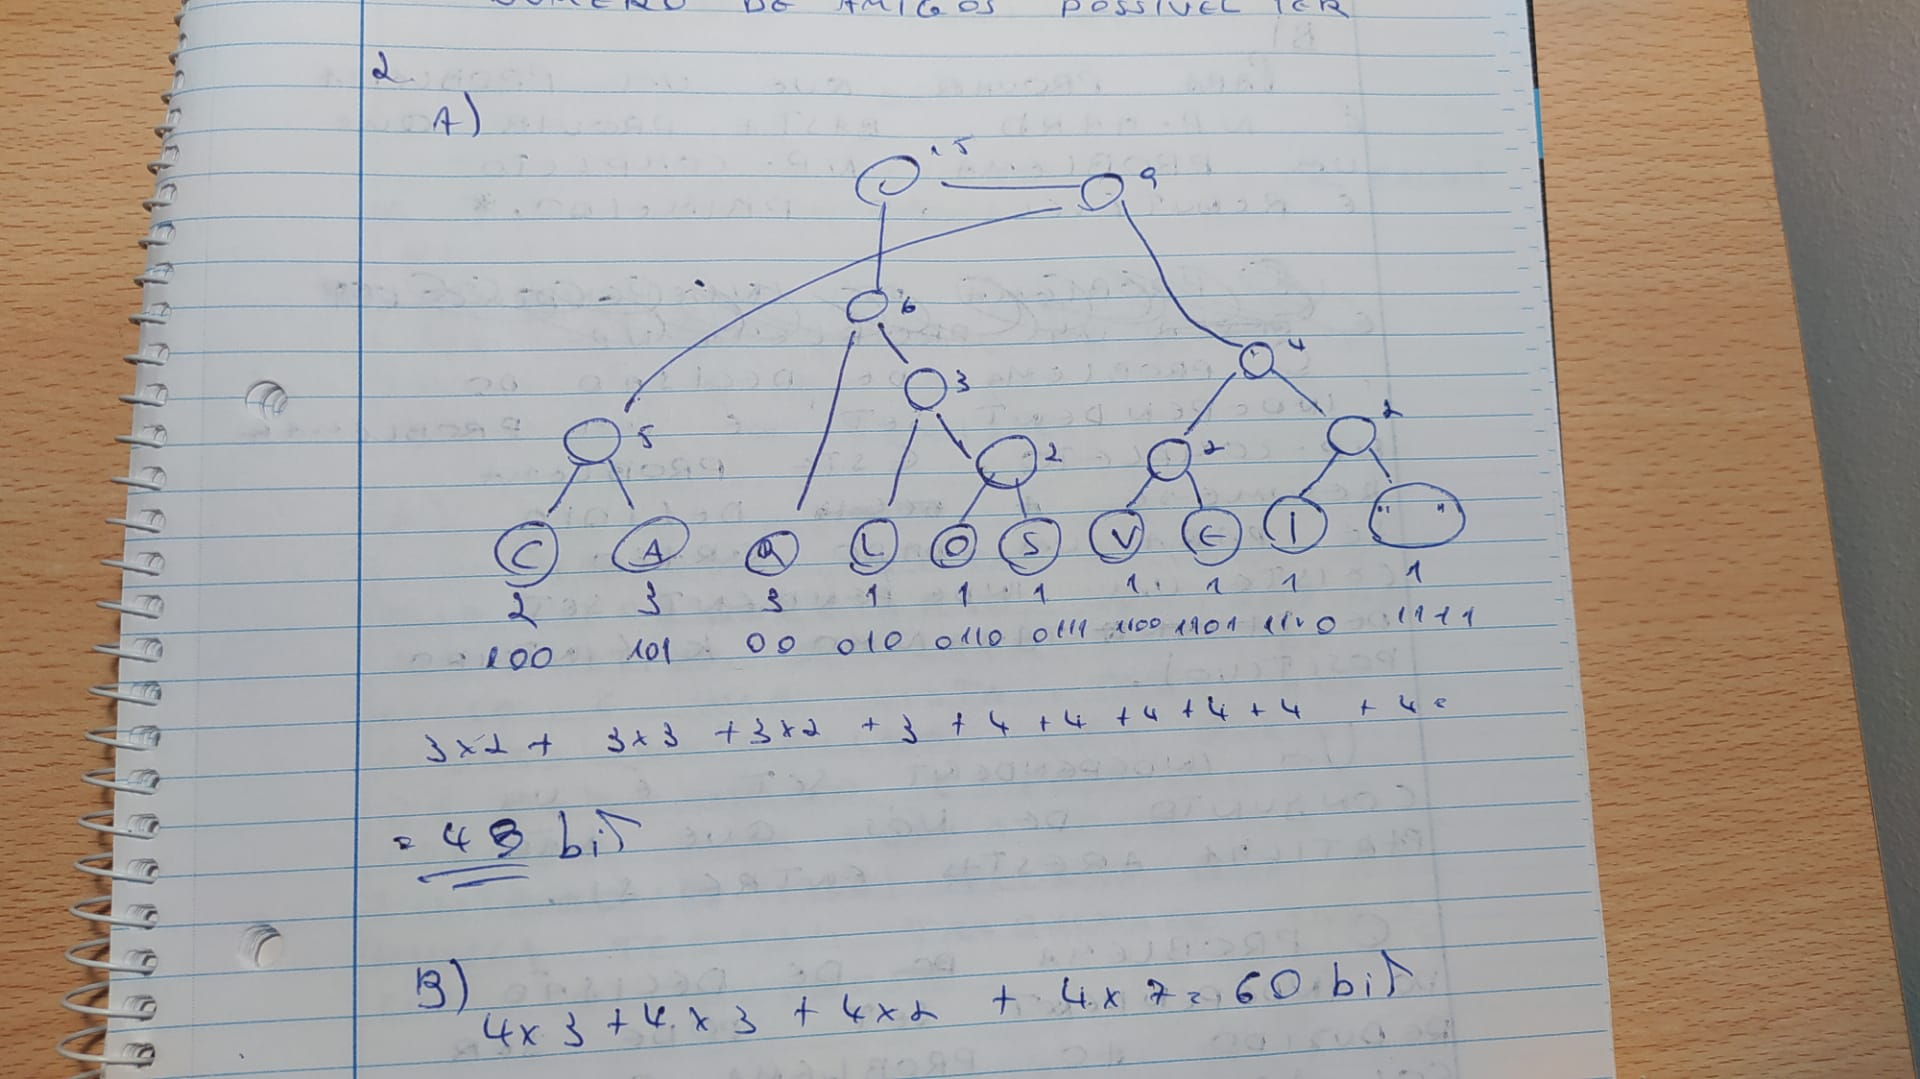 NUMERO DE AMIGOS POSSIVEL TER
2
A)
15 9
6
3 4
5 2 2 2
C A R L O S V E I " "
2 3 3 1 1 1 1 1 1 1
100 101 00 010 0110 0111 1100 1101 1110 1111
3x2 + 3x3 + 3x2 + 3 + 4 + 4 + 4 + 4 + 4 + 4 =
= 48 bit
B)
4x3 + 4x3 + 4x2 + 4x7 = 60 bit